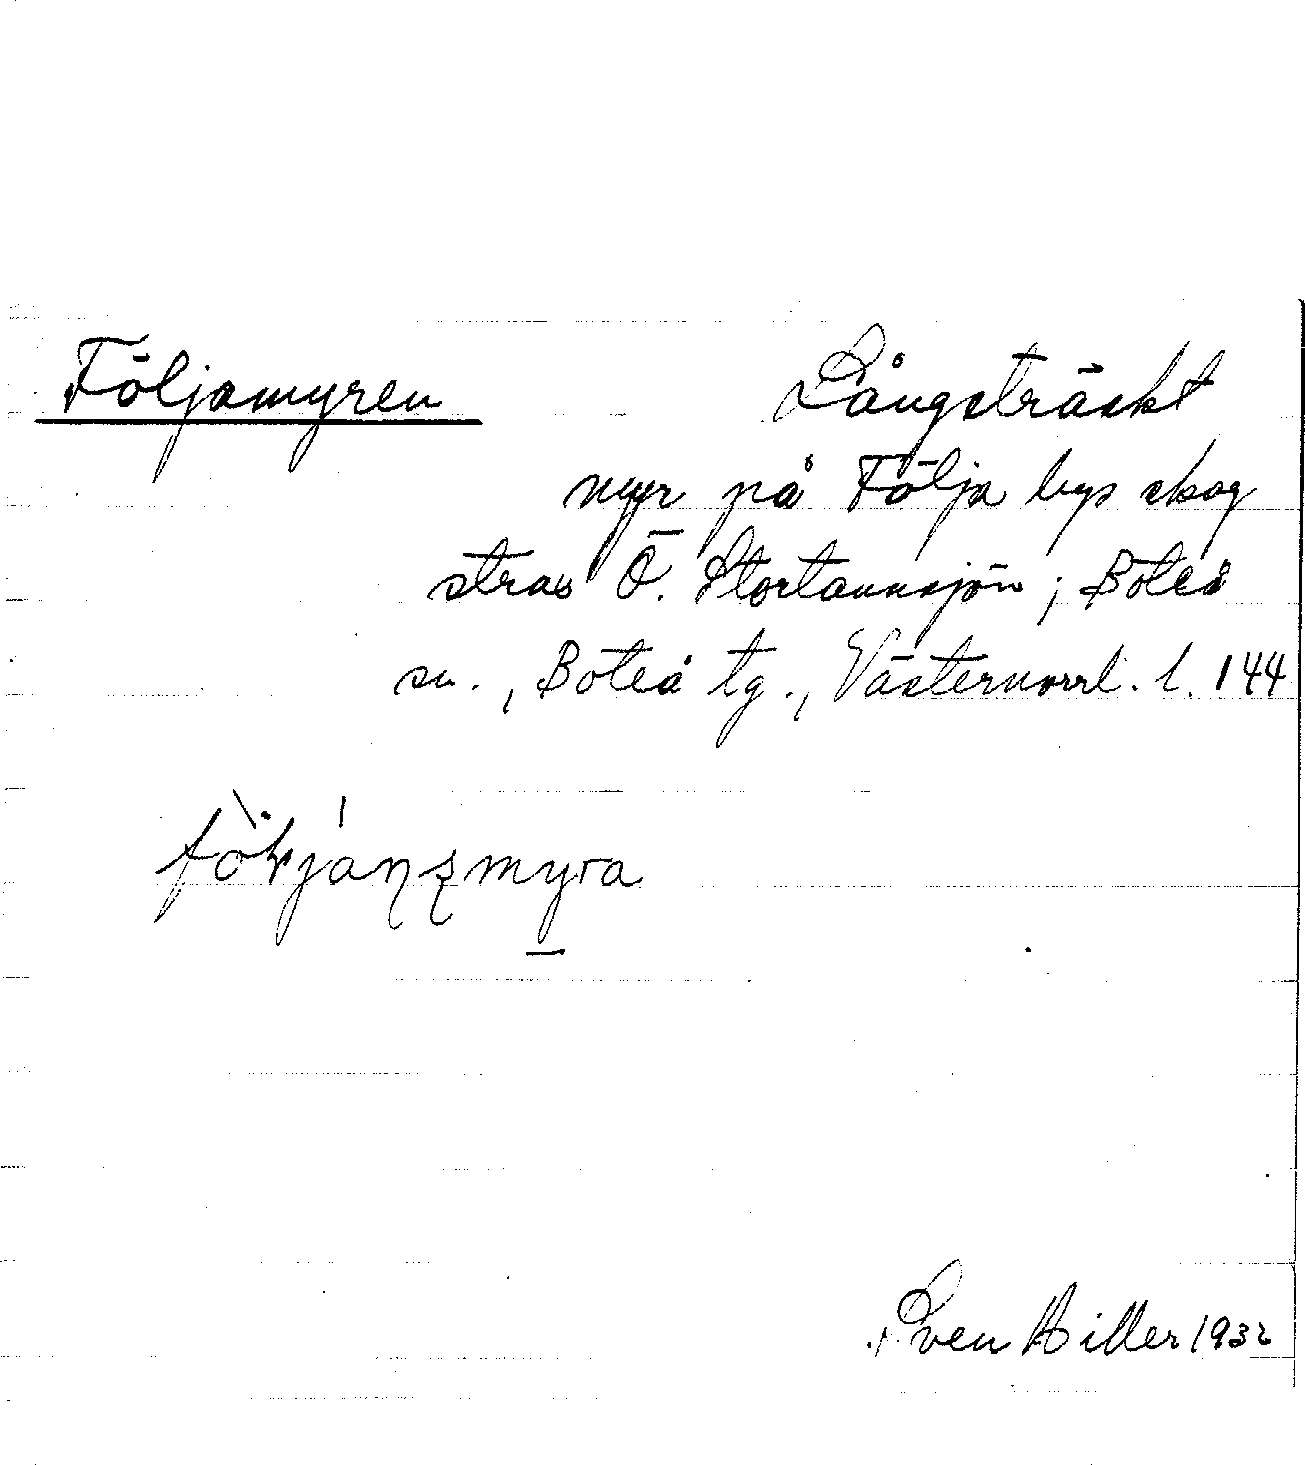 Följamyren
Långsträckt
myr på Följa bys skog
strax Ö. Stortannsjön; Boteå
sn., Boteå tg., Västernorrl. l. 144
Sven Hiller 1932